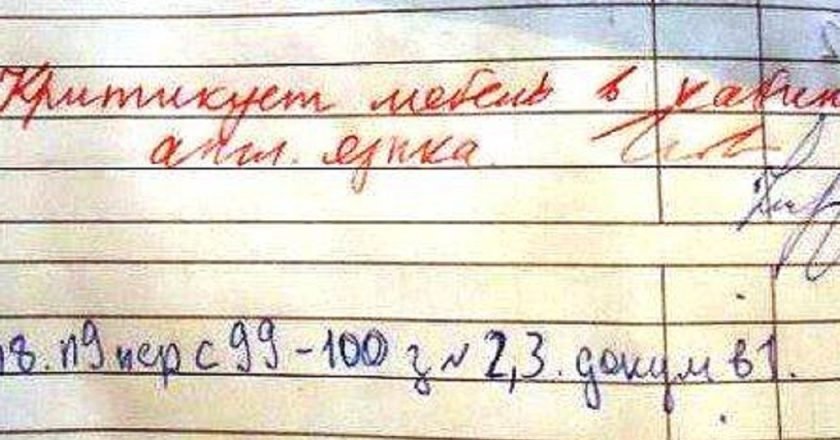 Критикует мебель в кабин
англ. языка
18. п9 пер с 99-100 з№ 2,3. докум в 1.